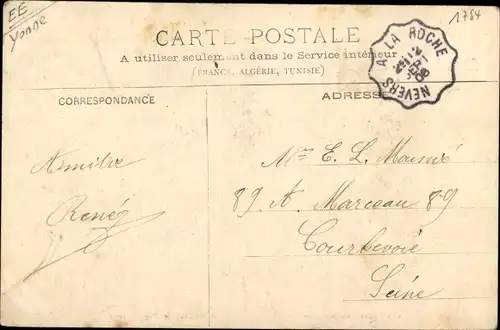 EE
Yonne
1754
CARTE POSTALE
A utiliser seulement dans le Service intérieur
(FRANCE, ALGÉRIE, TUNISIE)
NEVERS A LA ROCHE
CORRESPONDANCE
ADRESSE
René
E. L.
89 A. Marceau 89
Courbevoie
Seine